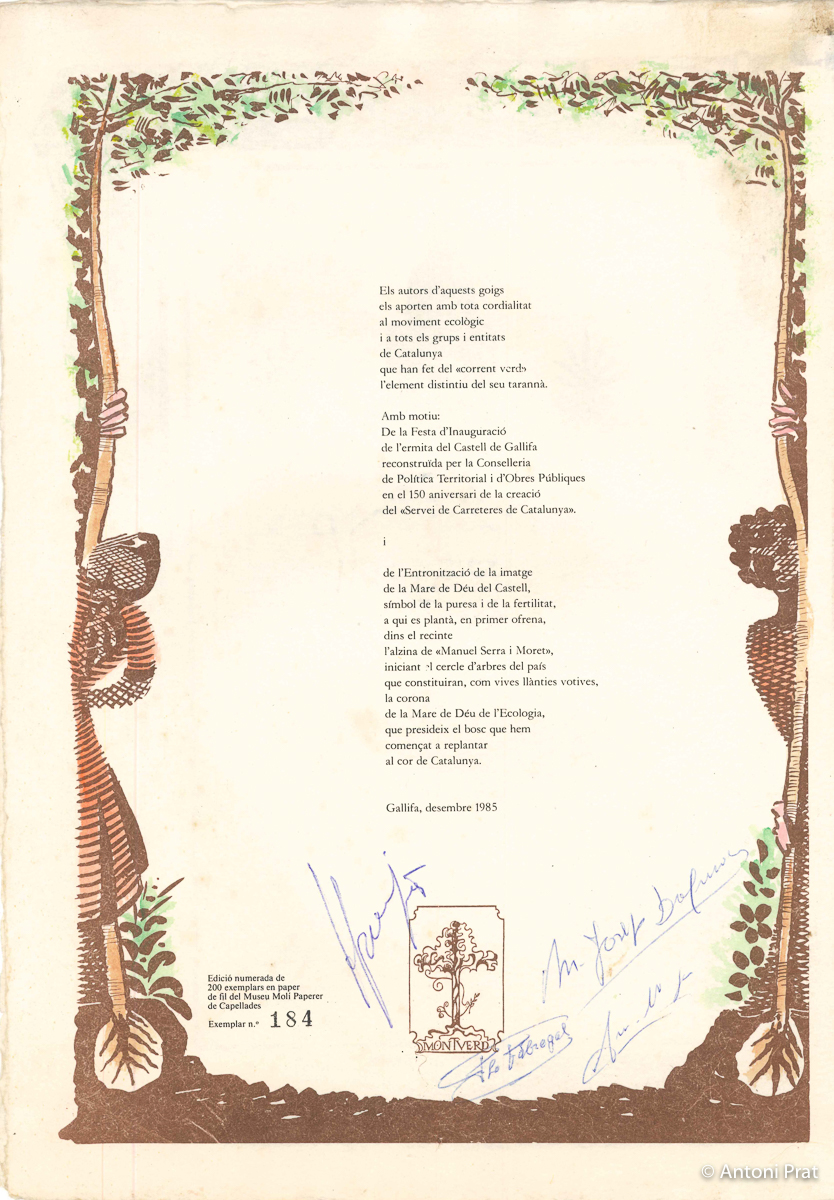 Els autors d'aquests goigs
els aporten amb tota cordialitat
al moviment ecològic
i a tots els grups i entitats
de Catalunya
que han fet del «corrent verd»
l'element distintiu del seu tarannà.
Amb motiu:
De la Festa d'Inauguració
de l'ermita del Castell de Gallifa
reconstruïda per la Conselleria
de Política Territorial i d'Obres Públiques
en el 150 aniversari de la creació
del «Servei de Carreteres de Catalunya».
i
de l'Entronització de la imatge
de la Mare de Déu del Castell,
símbol de la puresa i de la fertilitat,
a qui es plantà, en primer ofrena,
dins el recinte
l'alzina de «Manuel Serra i Moret»,
iniciant el cercle d'arbres del país
que constituiran, com vives llànties votives,
la corona
de la Mare de Déu de l'Ecologia,
que presideix el bosc que hem
començat a replantar
al cor de Catalunya.
Gallifa, desembre 1985
Edició numerada de
200 exemplars en paper
de fil del Museu Molí Paperer
de Capellades
Exemplar n.º 184
MONTVERD
M. Josep
Fàbregas
© Antoni Prat